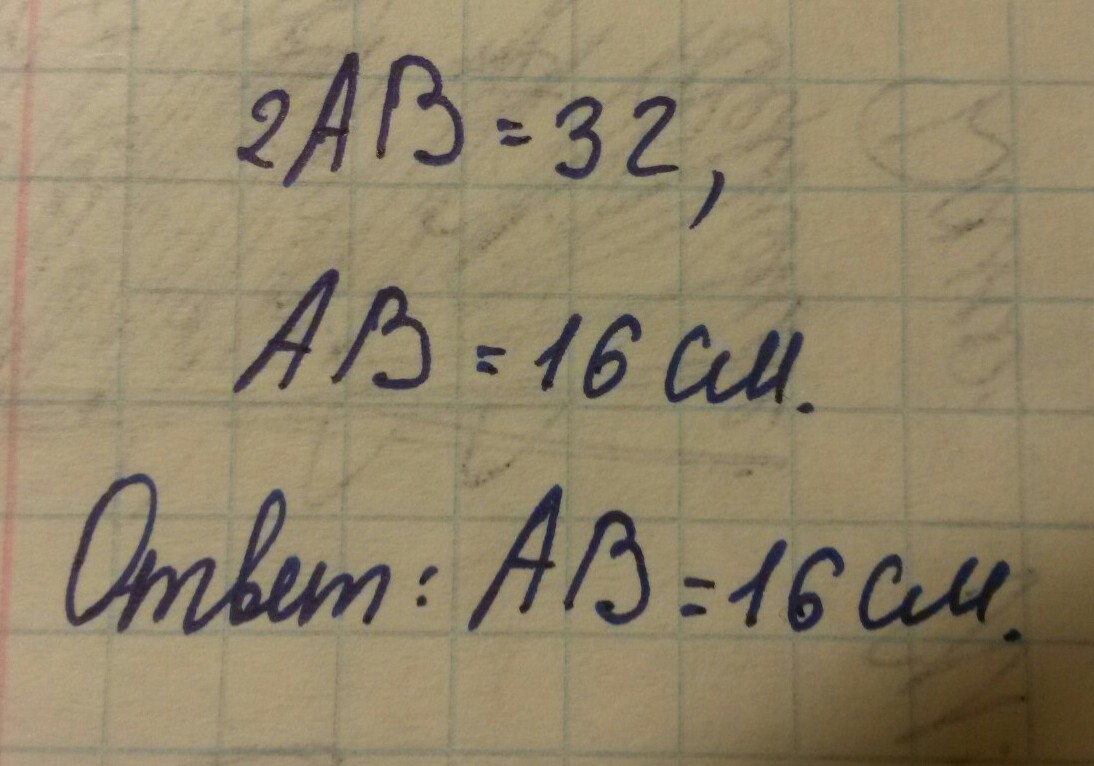 2AB = 32,
AB = 16 см.
Ответ: AB = 16 см.